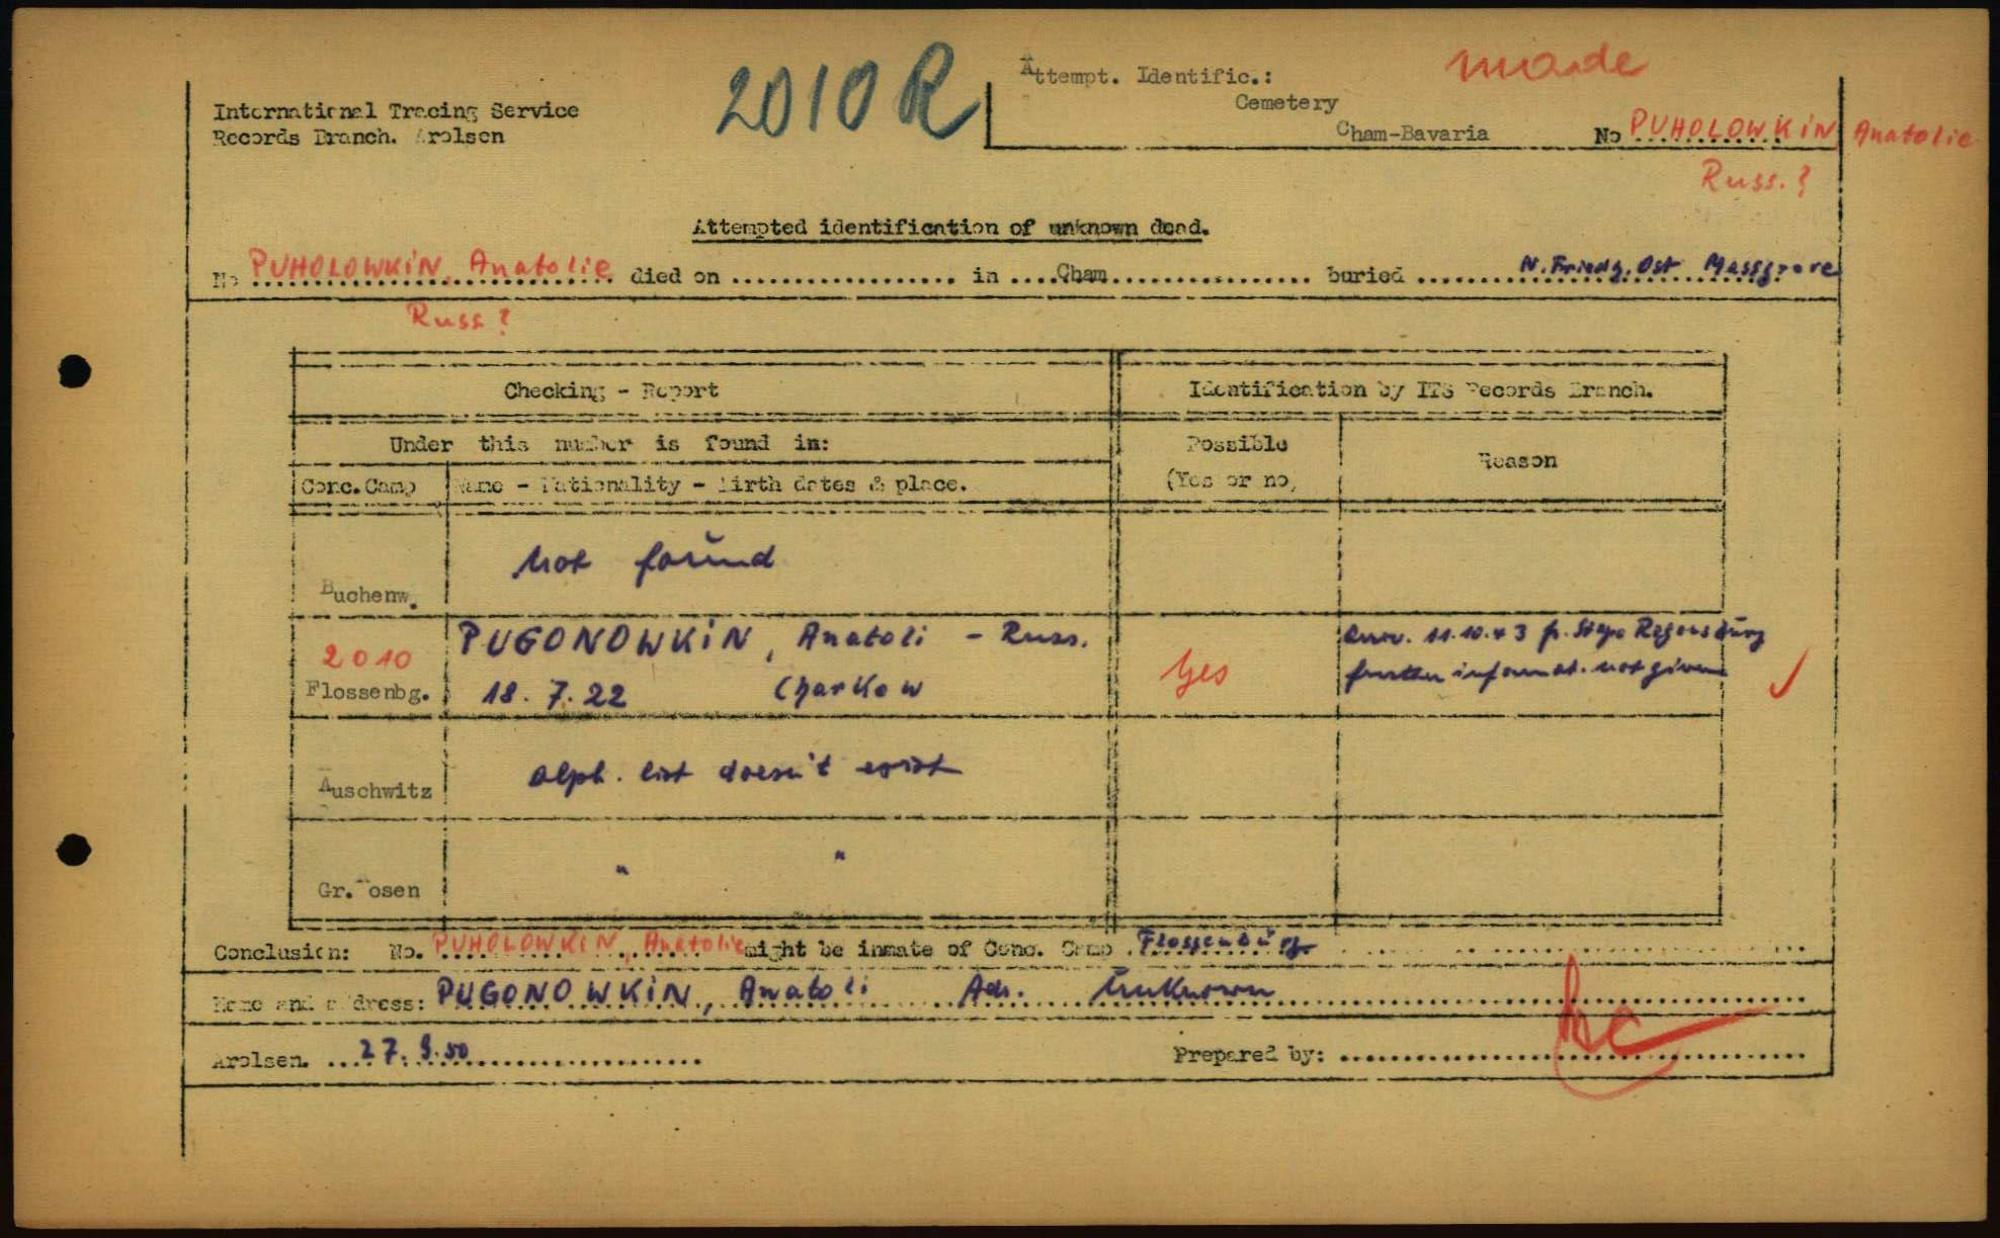 2010 R
made
Attempt. Identific.:
Cemetery
Cham-Bavaria No PUHOLOWKIN, Anatolie
Russ.?
International Tracing Service
Records Branch. Arolsen
Attempted identification of unknown dead.
No PUHOLOWKIN, Anatolie died on .................. in ....Cham................ buried ........N. Friedh. Ost Massgrave
Russ?
Checking - Report
Identification by ITS Records Branch.
Under this number is found in:
Possible
(Yes or no,
Reason
Conc.Camp
Name - Nationality - Birth dates & place.
not found
Buchenw.
2010
Flossenbg.
PUGONOWKIN, Anatoli - Russ.
18. 7. 22 Charkow
Yes
11.10.43 fr. Stapo Regensburg
further informat. not given
Auschwitz
alph. list doesn't exist
Gr. Rosen
" "
Conclusion: No. PUHOLOWKIN, Anatolie might be inmate of Conc. Camp Flossenbürg
Name and address: PUGONOWKIN, Anatoli Adr. Unknown
Arolsen. ....27. 9. 50........................
Prepared by: ........................